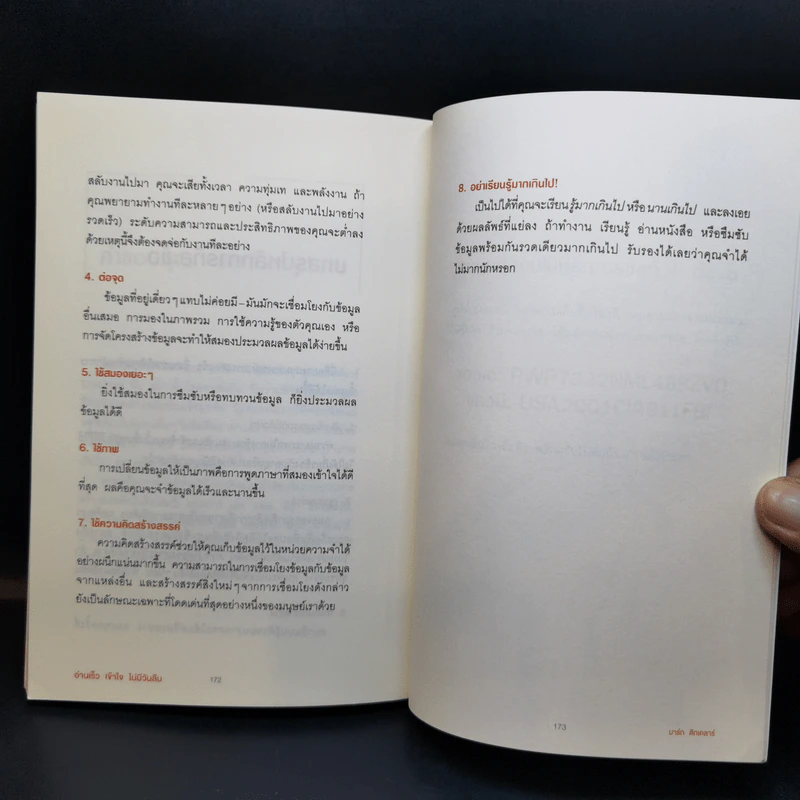 สลับงานไปมา คุณจะเสียทั้งเวลา ความทุ่มเท และพลังงาน ถ้า
คุณพยายามทำงานทีละหลายๆ อย่าง (หรือสลับงานไปมาอย่าง
รวดเร็ว) ระดับความสามารถและประสิทธิภาพของคุณจะต่ำลง
ด้วยเหตุนี้จึงต้องจดจ่อกับงานทีละอย่าง
4. ต่อจุด
ข้อมูลที่อยู่เดี่ยวๆ แทบไม่ค่อยมี – มันมักจะเชื่อมโยงกับข้อมูล
อื่นเสมอ การมองในภาพรวม การใช้ความรู้ของตัวคุณเอง หรือ
การจัดโครงสร้างข้อมูลจะทำให้สมองประมวลผลข้อมูลได้ง่ายขึ้น
5. ใช้สมองเยอะๆ
ยิ่งใช้สมองในการซึมซับหรือทบทวนข้อมูล ก็ยิ่งประมวลผล
ข้อมูลได้ดี
6. ใช้ภาพ
การเปลี่ยนข้อมูลให้เป็นภาพคือการพูดภาษาที่สมองเข้าใจได้ดี
ที่สุด ผลคือคุณจะจำข้อมูลได้เร็วและนานขึ้น
7. ใช้ความคิดสร้างสรรค์
ความคิดสร้างสรรค์ช่วยให้คุณเก็บข้อมูลไว้ในหน่วยความจำได้
อย่างผนึกแน่นมากขึ้น ความสามารถในการเชื่อมโยงข้อมูลกับข้อมูล
จากแหล่งอื่น และสร้างสรรค์สิ่งใหม่ๆ จากการเชื่อมโยงดังกล่าว
ยังเป็นลักษณะเฉพาะที่โดดเด่นที่สุดอย่างหนึ่งของมนุษย์เราด้วย
อ่านเร็ว เข้าใจ ไม่มีวันลืม 172
8. อย่าเรียนรู้มากเกินไป!
เป็นไปได้ที่คุณจะเรียนรู้มากเกินไป หรือ นานเกินไป และลงเอย
ด้วยผลลัพธ์ที่แย่ลง ถ้าทำงาน เรียนรู้ อ่านหนังสือ หรือซึมซับ
ข้อมูลพร้อมกันรวดเดียวมากเกินไป รับรองได้เลยว่าคุณจำได้
ไม่มากนักหรอก
173 มาร์ก ทิกเคลาร์